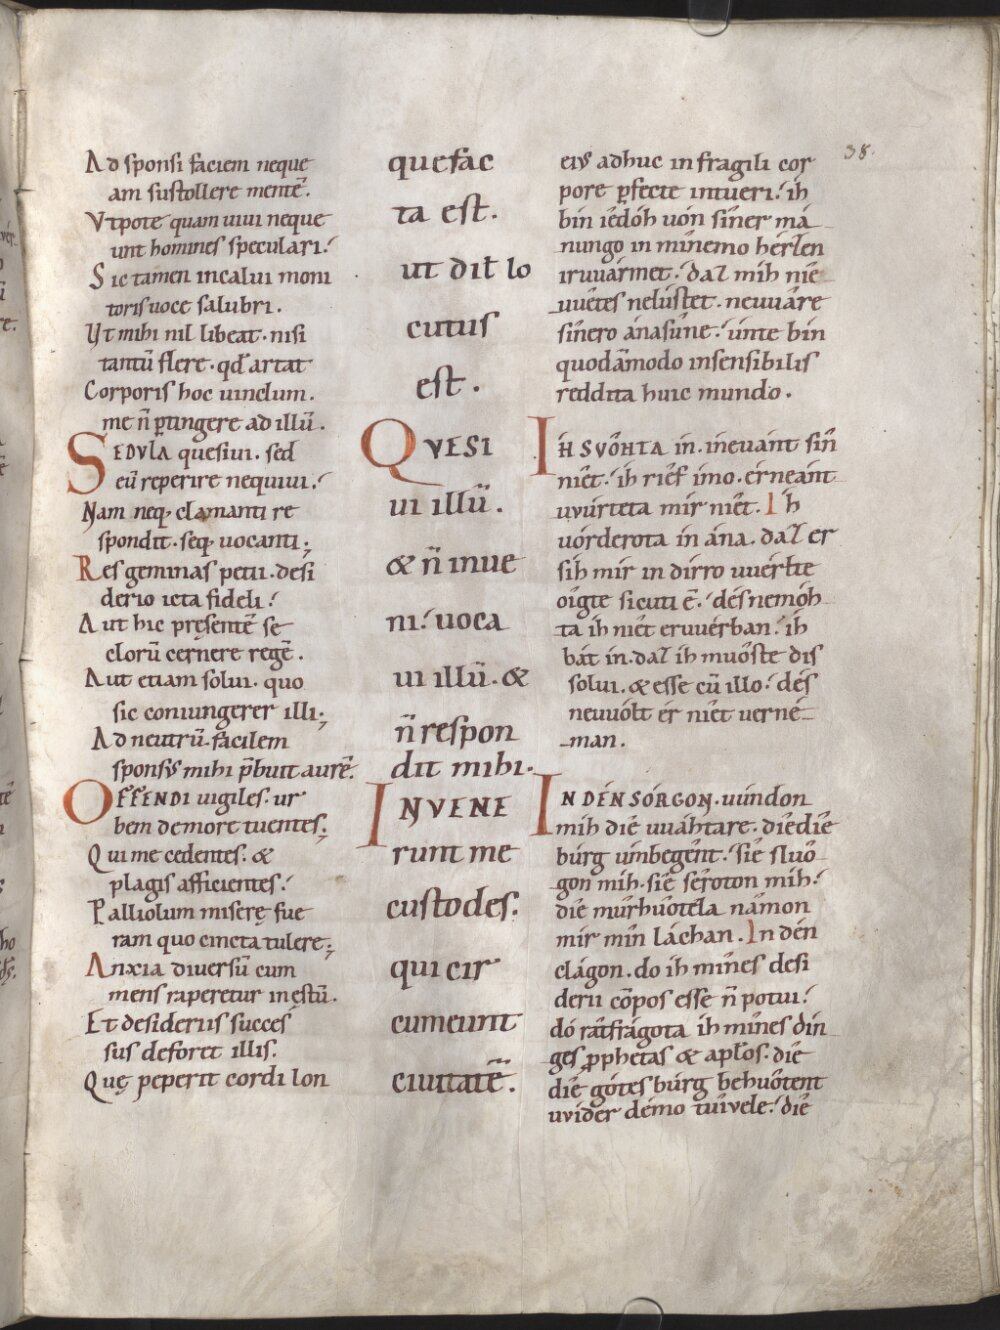 38.
Ad sponsi faciem neque
am sustollere mentē.
Vtpote quam uiui neque
unt homines speculari.
Sic tamen incalui moni
toris uoce salubri.
Vt mihi nil libeat. nisi
tantū flere. qđ artat
Corporis hoc uinclum.
me n̄ ꝑtingere ad illū.
SEDVLA quesiui. sed
eū reperire nequiui.
Nam neqꝫ clamanti re
spondit. seqꝫ uocanti;
Res geminas petii. desi
derio icta fideli.
Aut hic pręsentē se
clorū cernere regē.
Aut etiam solui. quo
sic coniungerer illi;
Ad neutrū. facilem
sponsus mihi p̄buit aurē.
OFFENDI uigiles. ur
bem de more tuentes;
Qui me cedentes. &
plagis afficientes.
Palliolum miserę fue
ram quo cincta tulere;
Anxia diuersū cum
mens raperetur in ęstū.
Et desideriis succes
sus deforet illis.
Quę peperit cordi lon
quefac
ta est.
ut dil̄ lo
cutus
est.
QVESI
ui illū.
& n̄ inue
ni. uoca
ui illū. &
n̄ respon
dit mihi.
INVENE
runt me
custodes.
qui cir
cumeunt
ciuitatē.
eius adhuc in fragili cor
pore ꝑfecte intueri. ih
bin iédóh uón sîner má
nungo in mînemo hérzen
iruuármet. daz mih nie
uuétes nelústet. neuuâre
sînero ánasûne. únte bin
quodāmodo insensibilis
reddita huic mundo.
IH SVÔHTA in. inevánt sîn
niêt. ih riêf imo. er neánt
uvúrteta mír niêt. Ih
vórderota ín ána. daz er
sih mir in dírro uuérlte
oîgte sicuti ē. dés nemóh
ta ih niêt eruuérban. ih
bát ín. daz ih muôste dis
solui. & esse cū illo. dés
neuuólt ér niêt verné
man.
IN DÉN SÓRGON. uúndon
mih diê uuáhtare. diê diê
búrg úmbegênt. siê sluô
gon mih. siê sêroton mih.
diê mûrhuôtela nâmon
mir mîn láchan. In dén
clágon. do ih mînes desi
derii cōpos esse n̄ potui.
dó râtfrâgota ih mînes dín
ges ꝓphetas & apl̄os. diê
diê gótes búrg behuôtent
uvíder démo tuîvele. diê